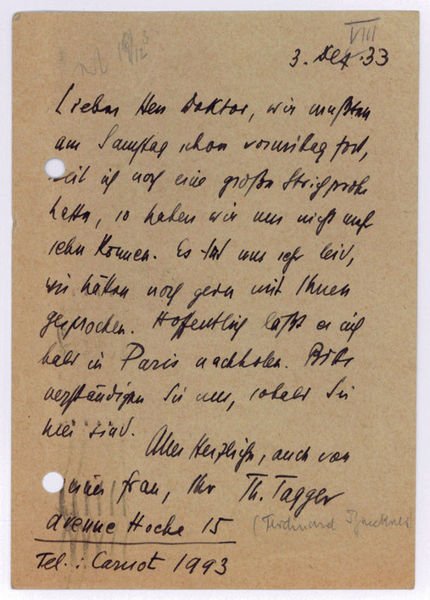 VIII
3. Dez. 33
Lieber Herr Doktor, wir mußten
am Samstag schon vormittag fort,
weil ich noch eine große
hatte, so haben wir uns nicht mehr
sehn können. Es tut uns sehr leid,
wir hätten noch gern mit Ihnen
gesprochen. Hoffentlich läßt es sich
bald in Paris nachholen. Bitte
verständigen Sie uns, sobald Sie
hier sind.
Alles Herzliche, auch von
meiner Frau, Ihr Th. Tagger
(Ferdinand Bruckner)
avenue Hoche 15
Tel.: Carnot 1993